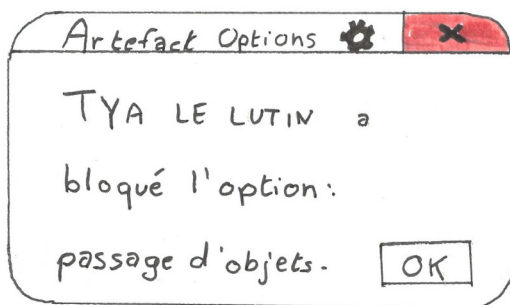 Artefact Options
TYA LE LUTIN a
bloqué l'option:
passage d'objets.
OK